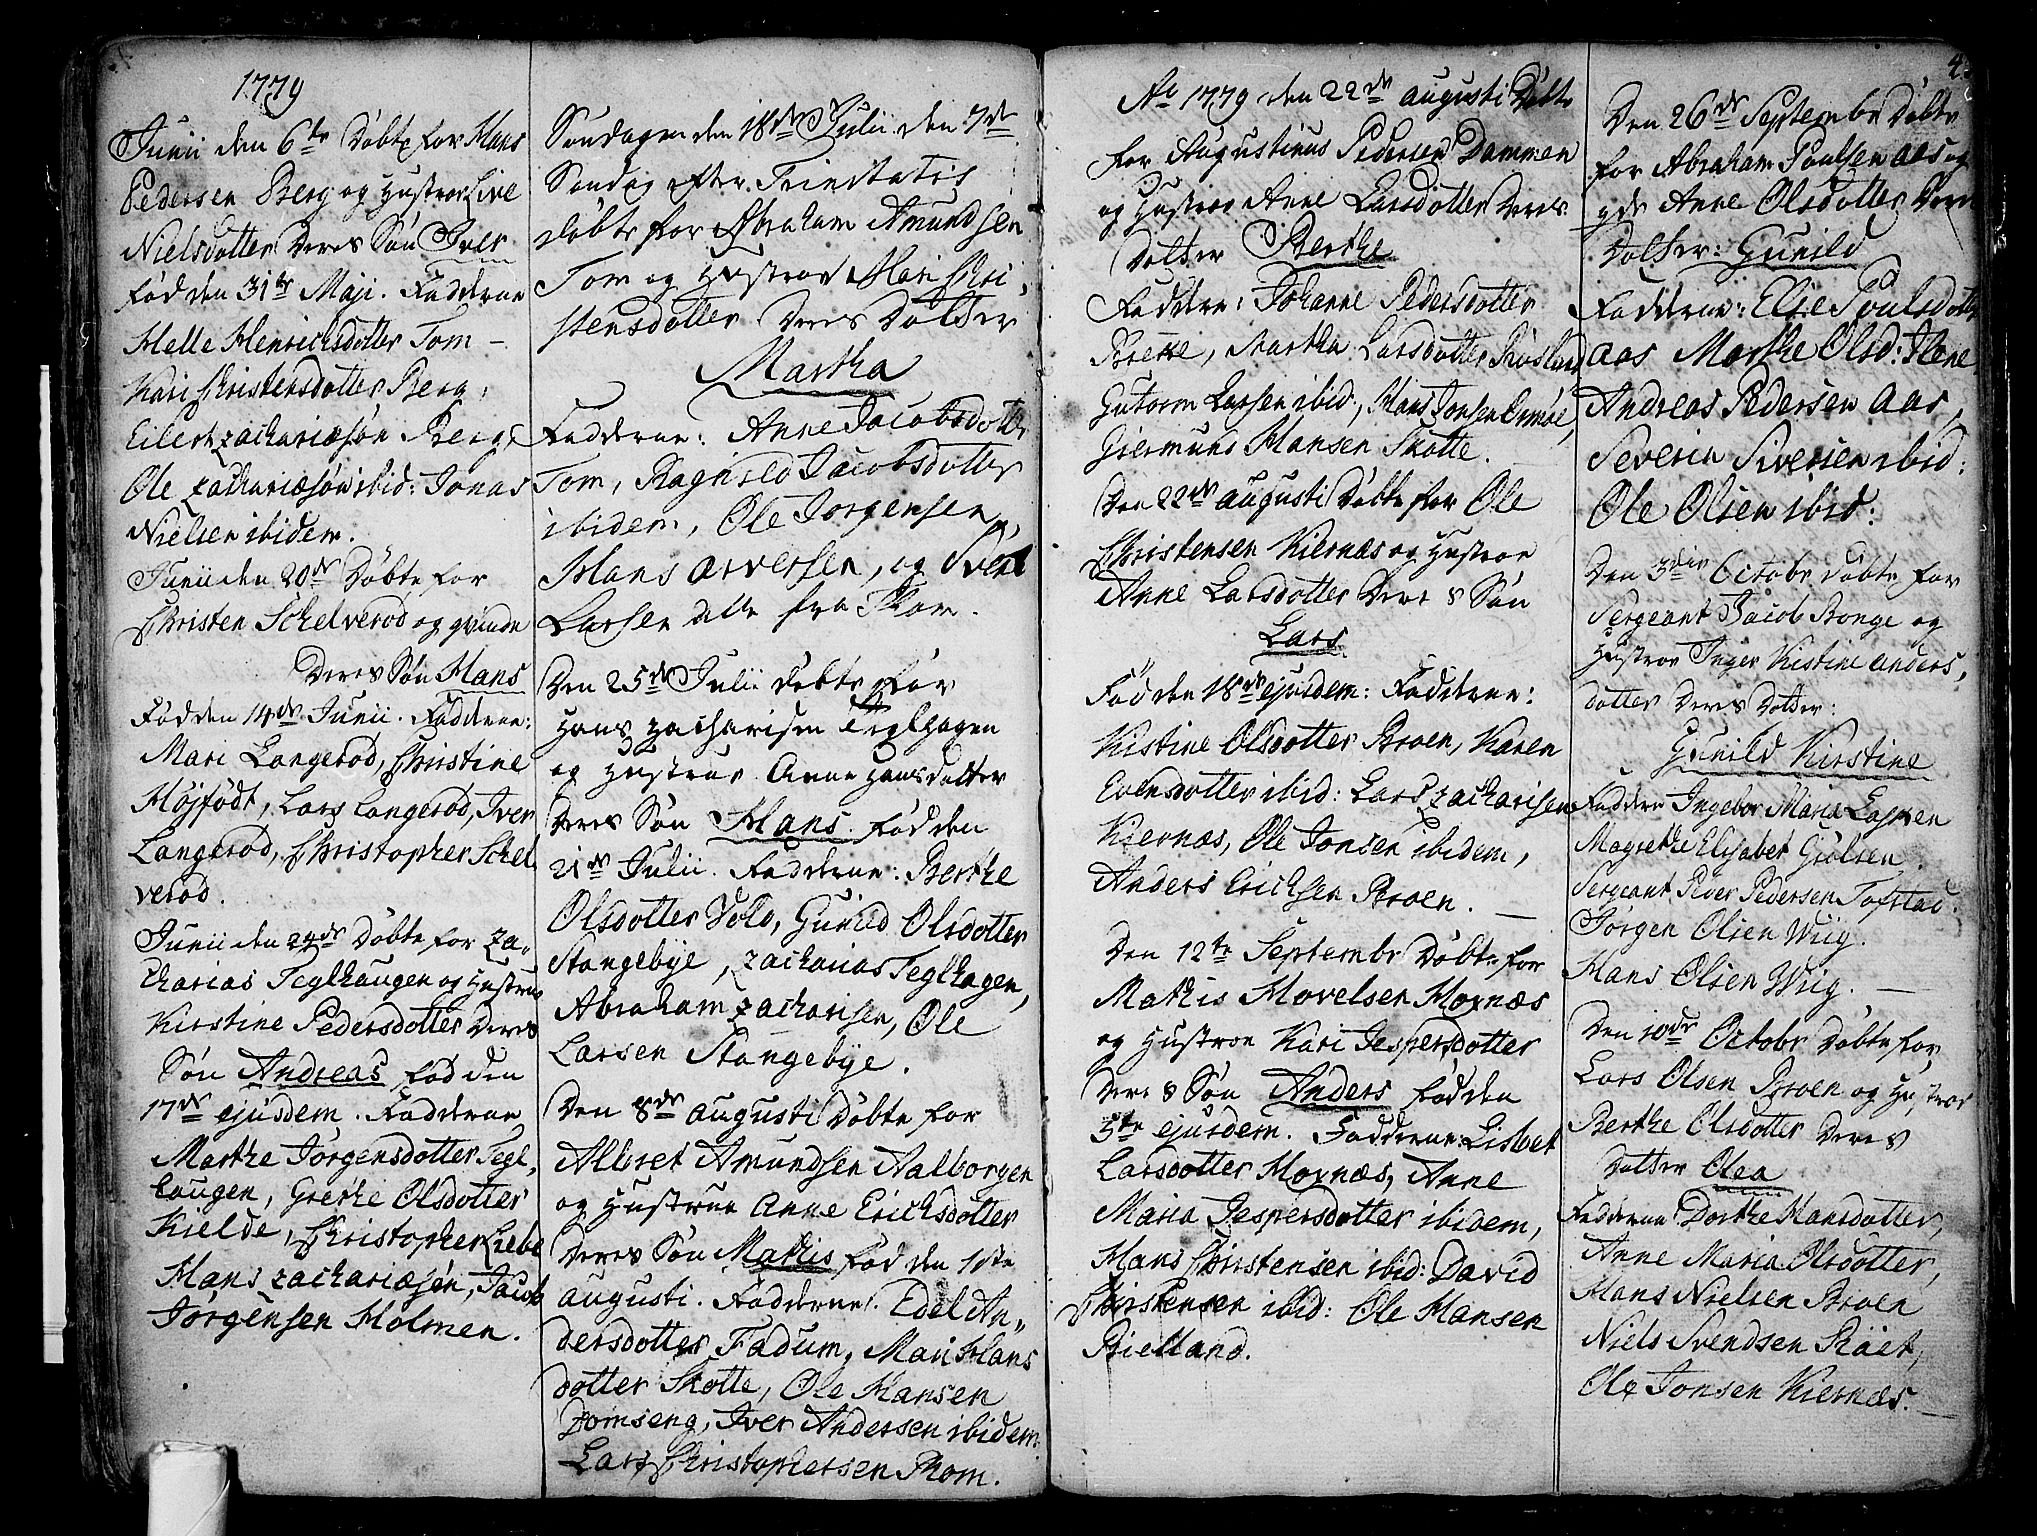 1779
Junii den 6te Døbte for Hans
Pedersen Berg og Hustroe Live
Nielsdotter Deres Søn Iver
fød den 31te Maji. Fadderne
Helle Henrichsdotter Tom –
Kari Christensdotter Berg,
Eilert Zachariæsøn Berg,
Ole Zachariæsøn ibid: Jonas
Nielsen ibidem.
Junii den 20de Døbte for
Christen Schelverød og qvinde
Deres Søn Hans
Fød den 14de Junii. Fadderne:
Mari Langerød, Christine
Højfødt, Lars Langerød, Iver
Langerød, Christopher Schel
verød.
Junii den 24de Døbte for Za-
charias Teglhaugen og Hustrue
Kirstine Pedersdotter Deres
Søn Andreas fød den
17de ejusdem. Fadderne
Marthe Jørgensdotter Tegl,
haugen, Grethe Olsdotter
Kielde, Christopher
Hans Zachariæsøn, Jacob
Jørgensen Holmen.
Søndagen den 18de Julii den 7de
Søndag efter Trinitatis
døbte for Abraham Amundsen
Tom og Hustroe Mari Chri,
stensdotter Deres Dotter
Martha
Fadderne: Anne Jacobsdotter
Tom, Ragnild Jacobsdotter
ibidem, Ole Jorgensen,
Hans Arversen, og Svend
Larsen alle fra Thom.
Den 25de Julii døbte for
Hans Zacharisen Teglhagen
og Hustrue Anne Hansdotter
Deres Søn Hans fød den
21de Julii. Fadderne: Berthe
Olsdotter Vold, Gunild Olsdotter
Stangebye, Zacharias Teglhagen,
Abraham Zacharisen, Ole
Larsen Stangebye.
Den 8de Augusti Døbte for
Albret Amundsen Aalborgen
og Hustrue Anne Erichsdotter
Deres Søn Mathis fød den 1ste
Augusti. Fadderne: Edel An,,
dersdotter Fadum, Mari Hans
dotter Skotte, Ole Hansen
Domseng, Iver Andersen ibidem:
Lars Christophersen Thom.
Ao 1779 den 22de Augusti Døbte
for Augustinus Pedersen Dammen
og Hustroe Anne Larsdotter Deres
Dotter Berthe
Faddere: Johanne Pedersdotter
Brekke, Martha Larsdotter
Gutorm Larsen ibid., Hans Jonsen
Giermund Hansen Skotte.
Den 22de Augusti Døbte for Ole
Christensen Kiernæs og Hustroe
Anne Larsdotter Deres Søn
Lars
Fød den 18de ejusdem: Fadderne:
Kistine Olsdotter Broen, Karen
Evensdotter ibid: Lars Zacharisen
Kiernæs, Ole Jonsen ibidem,
Anders Erichsen Broen. —
Den 12te Septembr Døbte for
Mathis Hovelsen Hornæs
og Hustroe Kari Jespersdotter
Deres Søn Anders fød den
5te ejusdem. Fadderne: Lisbet
Larsdotter Hornæs, Anne
Maria Jespersdotter ibidem,
Hans Christensen ibid: David
Christensen ibid: Ole Hansen
Bielland.
Den 26de Septembr Døbte
for Abraham Poulsen Aas og
qde Anne Olsdotter Deres
Dotter: Gunild
Fadderne: Else Poulsdotter
Aas Marthe Olsd:
Andreas Pedersen Aas,
Severin Siversen ibid:
Ole Olsen ibid:
Den 3die Octobr døbte for
Sergeant Jacob Bonge og
Hustroe Inger Kistine Anders,
dotter Deres Dotter:
Gunild Kirstine
Faddere Ingebor Maria
Magrethe Elisabet
Sergeant Peder Pedersen Tofstad.
Jørgen Olsen Wiig.
Hans Olsen Wiig. —
Den 10de Octobr Døbte for
Lars Olsen Broen og Hustroe
Berthe Olsdotter Deres
Dotter Olea
Fadderne Dorthe Hansdotter,
Anne Maria Olsdotter,
Hans Nielsen Broen
Niels Svendsen
Ole Jonsen Kiernæs. —